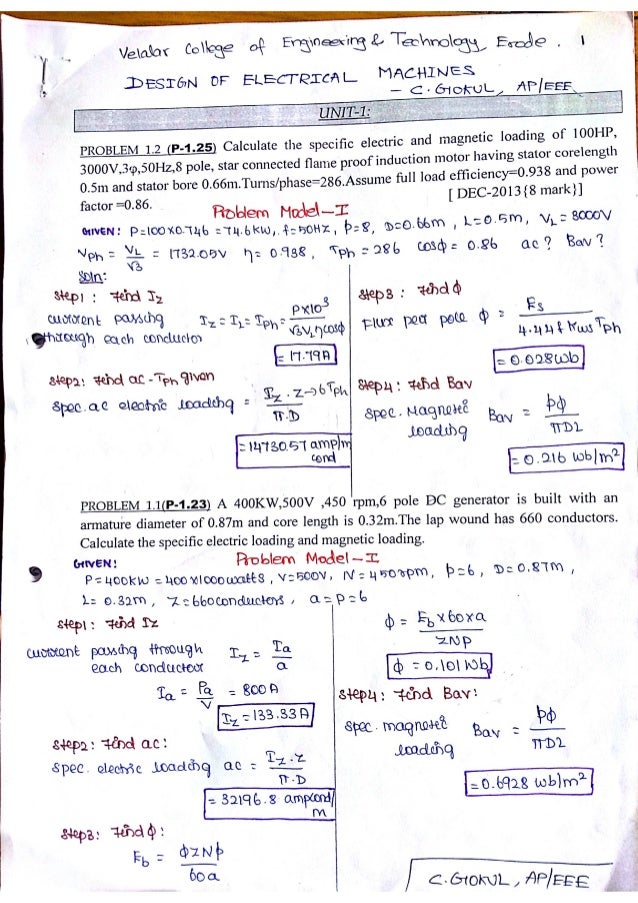 Velalar College of Engineering & Technology, Erode. 1
DESIGN OF ELECTRICAL MACHINES
- C. GOKUL, AP/EEE
UNIT-1:
PROBLEM 1.2 (P-1.25) Calculate the specific electric and magnetic loading of 100HP,
3000V,3φ,50Hz,8 pole, star connected flame proof induction motor having stator corelength
0.5m and stator bore 0.66m.Turns/phase=286.Assume full load efficiency=0.938 and power
factor =0.86. [ DEC-2013{8 mark}]
Problem Model-I
GIVEN: P=100x0.746 = 74.6kW, f=50HZ, p=8, D=0.66m, L=0.5m, VL = 3000V
Vph = VL/√3 = 1732.05V η= 0.938, Tph = 286 cosφ= 0.86 ac? Bav?
Soln:
Step1: Find Iz
current passing through each conductor Iz = IL = Iph = Px10³/√3VLηcosφ
= 17.79A
Step2: Find ac - Tph given
Spec. ac electric loading = Iz . Z→6Tph / π.D
= 14730.57 amp/m cond
Step3: Find φ
Flux per pole φ = Es / 4.44 f Kws Tph
= 0.028wb
Step4: Find Bav
Spec. Magnetic loading Bav = pφ / πDL
= 0.216 wb/m²
PROBLEM 1.1(P-1.23) A 400KW,500V ,450 rpm,6 pole DC generator is built with an
armature diameter of 0.87m and core length is 0.32m.The lap wound has 660 conductors.
Calculate the specific electric loading and magnetic loading.
GIVEN: Problem Model-I
P=400kW = 400x1000watts, V=500V, N=450rpm, p=6, D=0.87m,
L= 0.32m, Z=660conductors, a=p=6
Step1: Find Iz
current passing through each conductor Iz = Ia/a
Ia = Pa/V = 800A
Iz = 133.33A
Step2: Find ac:
Spec. electric loading ac = Iz.Z / π.D
= 32196.8 ampcond/m
Step3: Find φ:
Eb = φZNp / 60a
φ = Eb x 60 x a / ZNP
φ = 0.101 Wb
Step4: Find Bav:
Spec. magnetic loading Bav = pφ / πDL
= 0.6928 wb/m²
C. GOKUL, AP/EEE